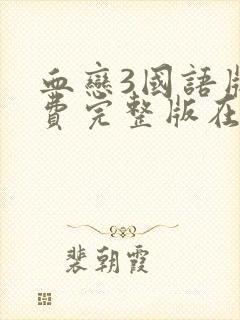 血戀3國語版
費完整版在
裴朝霞